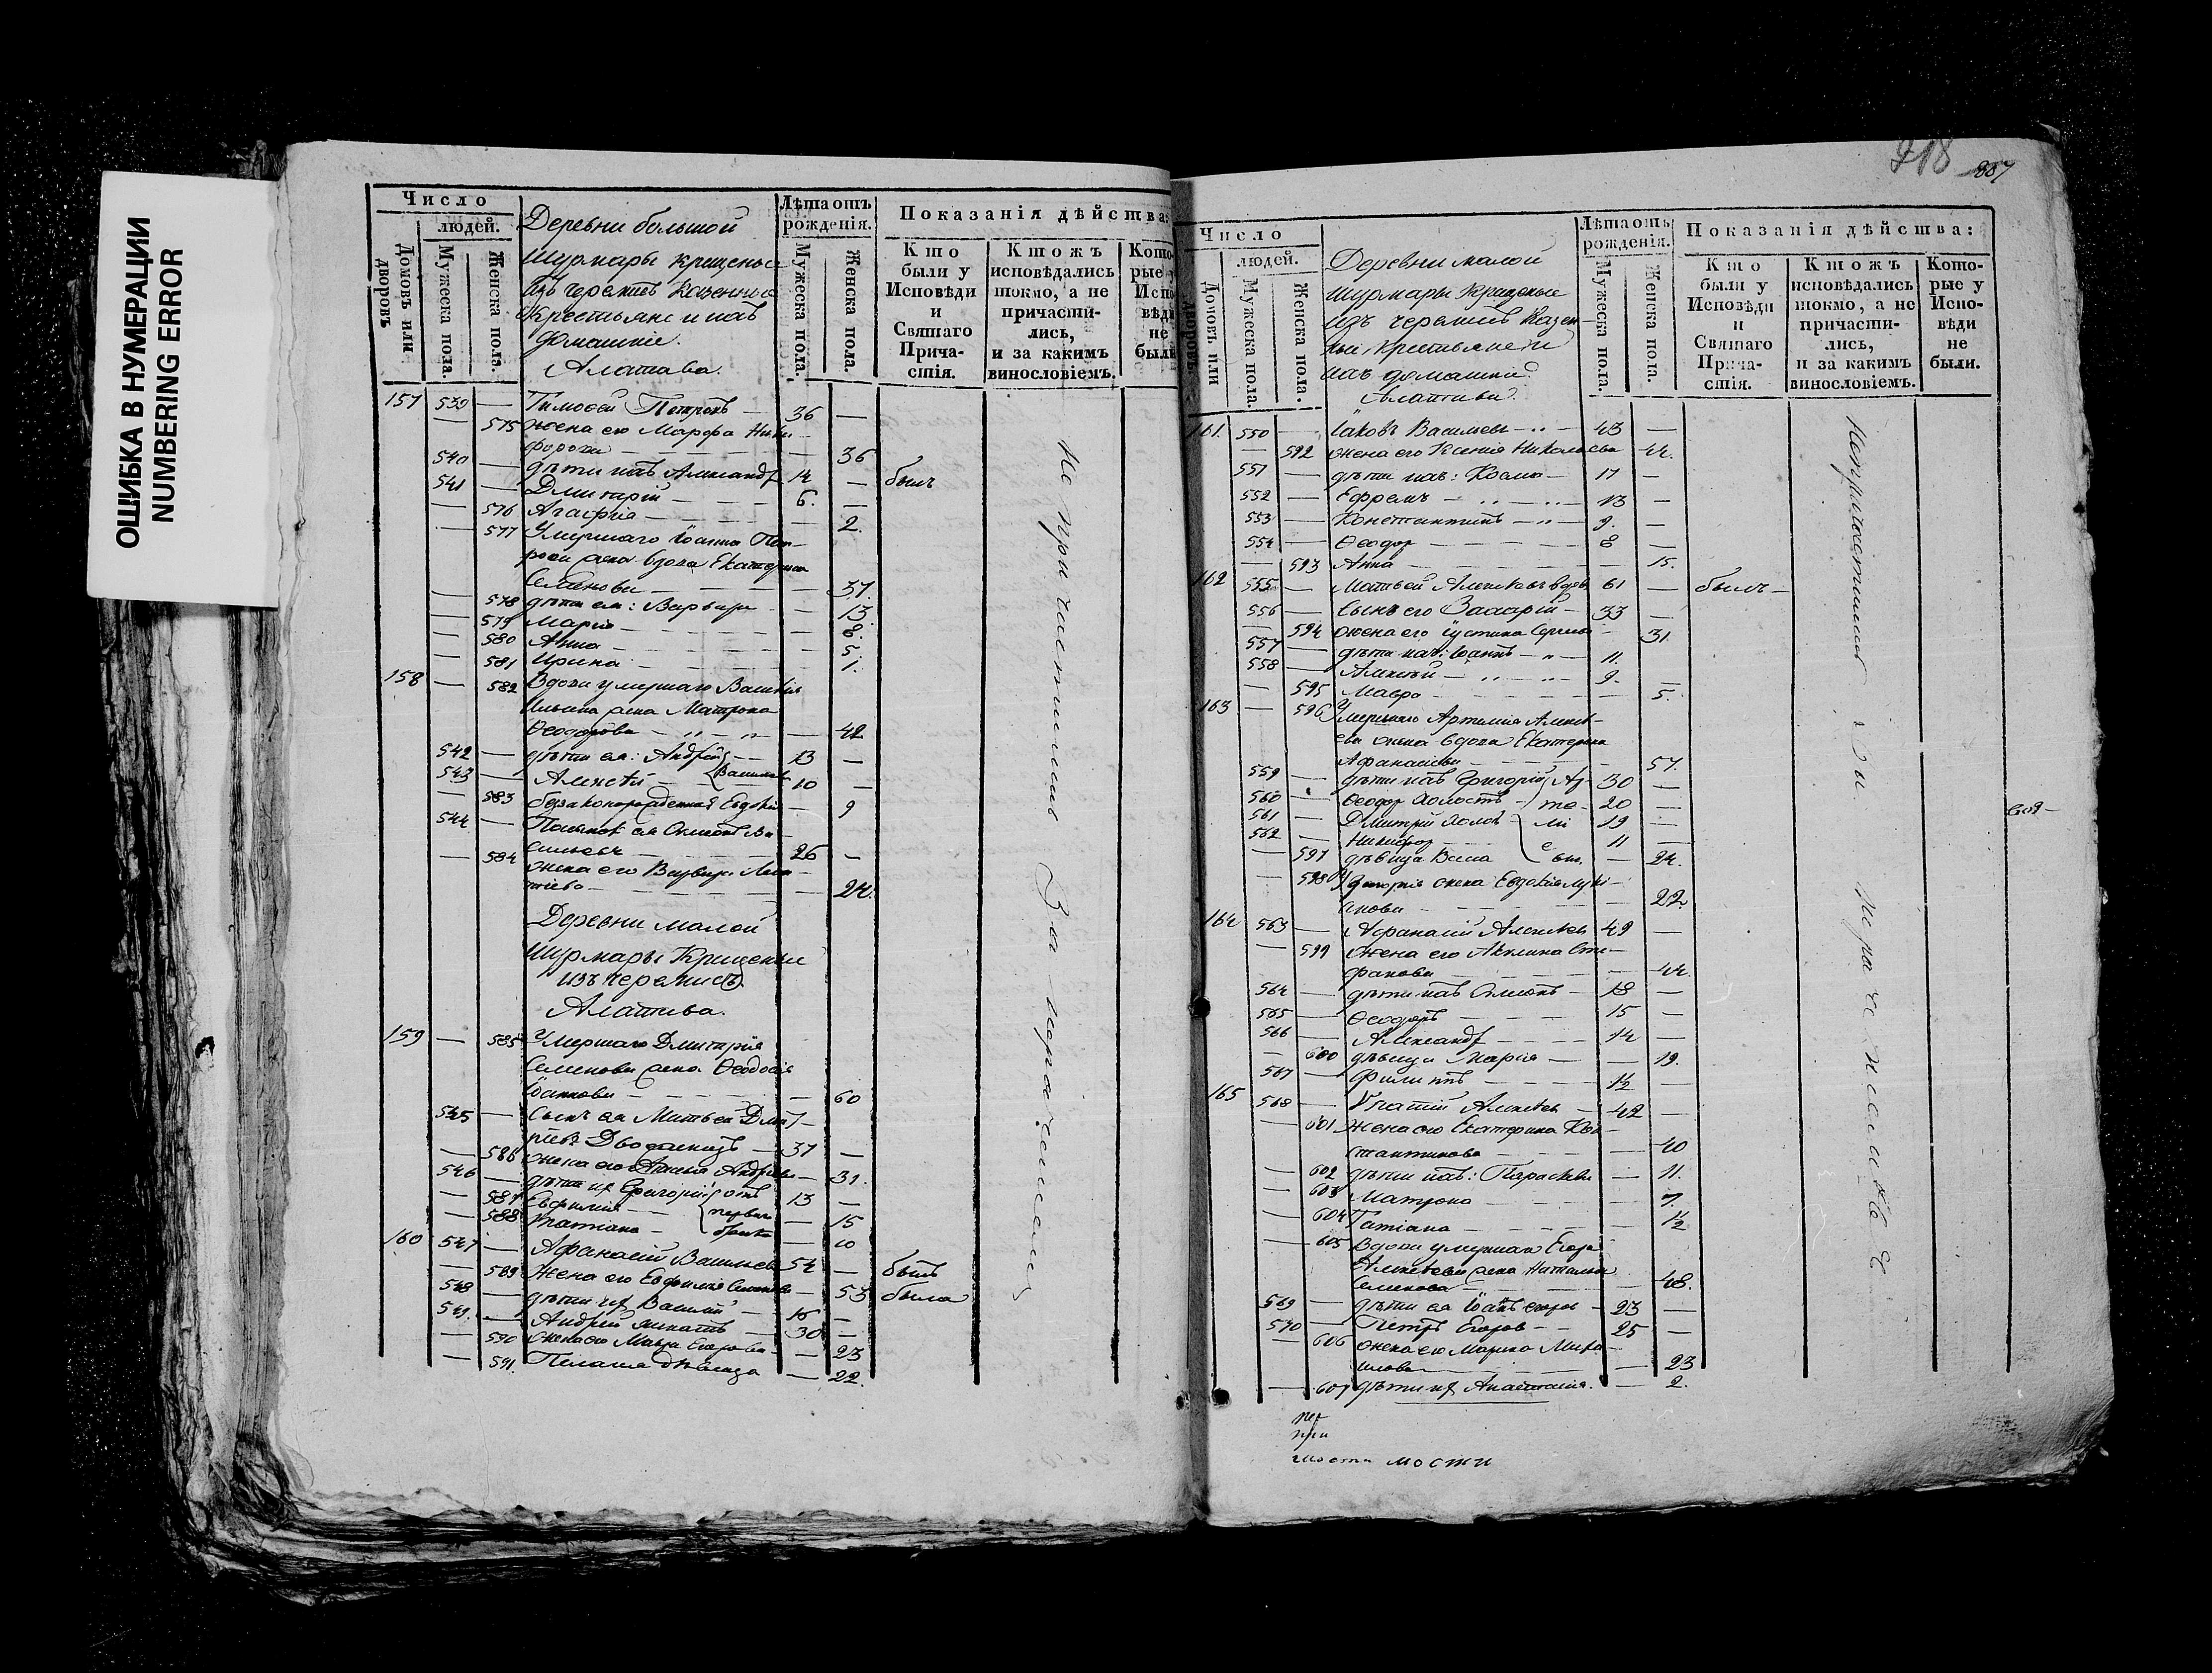 ОШИБКА В НУМЕРАЦИИ
NUMBERING ERROR
Число
людей.
Домовъ или дворовъ
Мужеска пола.
Женска пола.
Деревни большой
Шурмары крещеные
изъ черемисъ Казенные
Крестьяне и ихъ
домашніе.
Лѣта отъ рожденія.
Мужеска пола.
Женска пола.
Показанія дѣйства:
Кто были у Исповѣди и Святаго Причастія.
Ктожъ исповѣдались токмо, а не причастились, и за какимъ винословіемъ.
157 539 — Тимоѳей Петровъ — 36 —
— 575 жена его Марѳа Ники-
форова — 36
540 — дѣти ихъ Александръ 14 — былъ
541 — Дмитрій — 6. —
— 576 Агафія — 2.
— 577 Умершаго Іоанна Пет-
рова жена вдова Екатерина
Семенова — 37.
— 578 дѣти ея: Варвара — 13
— 579 Марія — 8.
— 580 Анна — 5
— 581 Ирина — 1.
158 — 582 Вдова умершаго Василія
Ильина жена Матрона
Ѳеодорова — 42
542 — дѣти ея: Андрей — 13 —
543 — Алексѣй — Васильев 10 —
— 583 безаконорожденная Евдокія — 9
544 — Пасынокъ ея Симеонъ Ва-
сильевъ — 26 —
— 584 жена его Варвара
— 24.
Деревни малой
Шурмары Крещеные
изъ черемисъ
159 — 585 Умершаго Дмитрія
Семенова жена Ѳеодосія
Іоаннова — 60
545 — Сынъ ея Матвей Дми-
тріевъ Двоеженецъ — 37 —
— 586 жена его Андреева — 31.
546 — дѣти их Григорій отъ 13 —
— 587 Евфимія — перваго — 15
— 588 Татіана — брака — 10
160 547 — Афанасій Васильевъ 54 — былъ
— 589 Жена его Евфимія Семенова — 53 была
548 — дѣти их Василій — 16 —
549. — Андрей женатъ — 30 —
— 590 жена его Мавра Егорова — 23
— 591. Пелагея дѣвица — 22.
не причастились За нерачениемъ
218 887
Число
людей.
Домовъ или дворовъ
Мужеска пола.
Женска пола.
Деревни малой
Шурмары Крещеные
изъ черемисъ Казен-
ные крестьяне и
ихъ домашніе
Лѣта отъ рожденія.
Мужеска пола.
Женска пола.
Показанія дѣйства:
Кто были у Исповѣди и Святаго Причастія.
Ктожъ исповѣдались токмо, а не причастились, и за какимъ винословіемъ.
Которые у Исповѣди не были.
161. 550 — Іаковъ Васильевъ — 43 —
— 592 жена его Ксенія Николаева 44.
551 — дѣти ихъ: Косма — 17 —
552 — Ефремъ — 13 —
553 — Константинъ — 9. —
554 — Ѳеодор — 8 —
— 593 Анна — 15.
162 555 — Матвей Алексѣевъ вдовъ 61 — былъ —
556 — Сынъ его Захарій — 33 —
— 594 жена его Іустина Сергеева — 31.
557 — дѣти ихъ: Іоаннъ — 11.
558 — Алексѣй — 9. —
— 595 Мавра — 5.
163 — 596 Умершаго Артемія Алексѣ-
ева жена вдова Екатерина
Афанасьева — 57.
559 — дѣти ихъ Григорій Ар- 30 —
560 — Ѳеодор холостъ — те- 20 —
561 — Дмитрій холос ми 19 —
562 — Никифор — е 11 —
— 597 дѣвица Васса вы. — 24.
— 598 Григорія жена Евдокія Луки-
анова — 22.
164 563 — Афанасій Алексѣев 49 —
— 599 Жена его Акилина Сте-
фанова — 44.
564 — дѣти ихъ Симеонъ — 18 —
565 — Ѳеодоръ — 15 —
566 — Александръ — 14 —
— 600 дѣвица Марія — 19.
567 — Филиппъ — 1½ —
165 568 — Ипатій Алексѣев — 42 —
— 601 Жена его Екатерина Кон-
стантинова — 40
— 602 дѣти ихъ: Параскева — 11.
— 603 Матрона — 7.
— 604 Татіана — 1½
— 605 Вдова умершаго Егора
Алексѣева жена Наталья
Семенова — 48.
569 — дѣти ея Іоаннъ егоров — 23 —
570 — Петръ Егоров — 25 —
— 606 жена его Марина Миха-
илова — 23
— 607 дѣти их Анастасія. — 2.
Не причастились За нерачениемъ